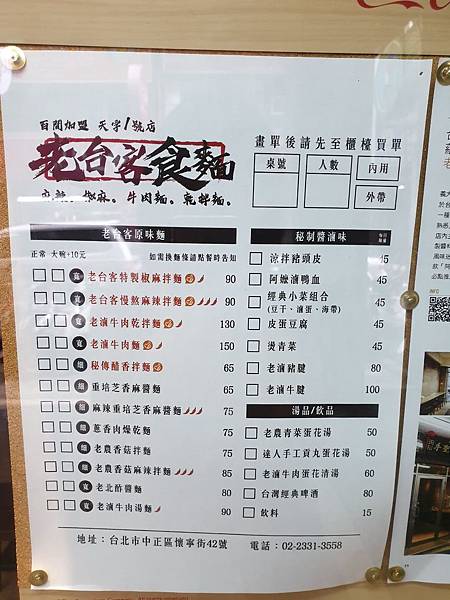 百間加盟 天字1號店
老台客食麵
麻辣。椒麻。牛肉麵。乾拌麵。
畫單後請先至櫃檯買單
桌號 人數 內用
外帶
老台客原味麵
正常 大碗+10元 如需換麵條請點餐時告知
寬 老台客特製椒麻拌麵 90
寬 老台客慢熬麻辣拌麵 90
寬 老滷牛肉乾拌麵 130
寬 老滷牛肉麵 150
細 秘傳醋香拌麵 65
細 重培芝香麻醬麵 65
細 麻辣重培芝香麻醬麵 75
細 蔥香肉燥乾麵 75
細 老農香菇拌麵 75
細 老農香菇麻辣拌麵 85
寬 老北酢醬麵 80
寬 老滷牛肉湯麵 90
秘制醬滷味
涼拌豬頭皮 45
阿嬤滷鴨血 45
經典小菜組合 45
(豆干、滷蛋、海帶)
皮蛋豆腐 45
燙青菜 45
老滷豬腱 80
老滷牛腱 100
湯品/飲品
老農青菜蛋花湯 50
達人手工貢丸蛋花湯 50
老滷牛肉蛋花清湯 60
台灣經典啤酒 80
飲料 15
地址：台北市中正區懷寧街42號 電話：02-2331-3558